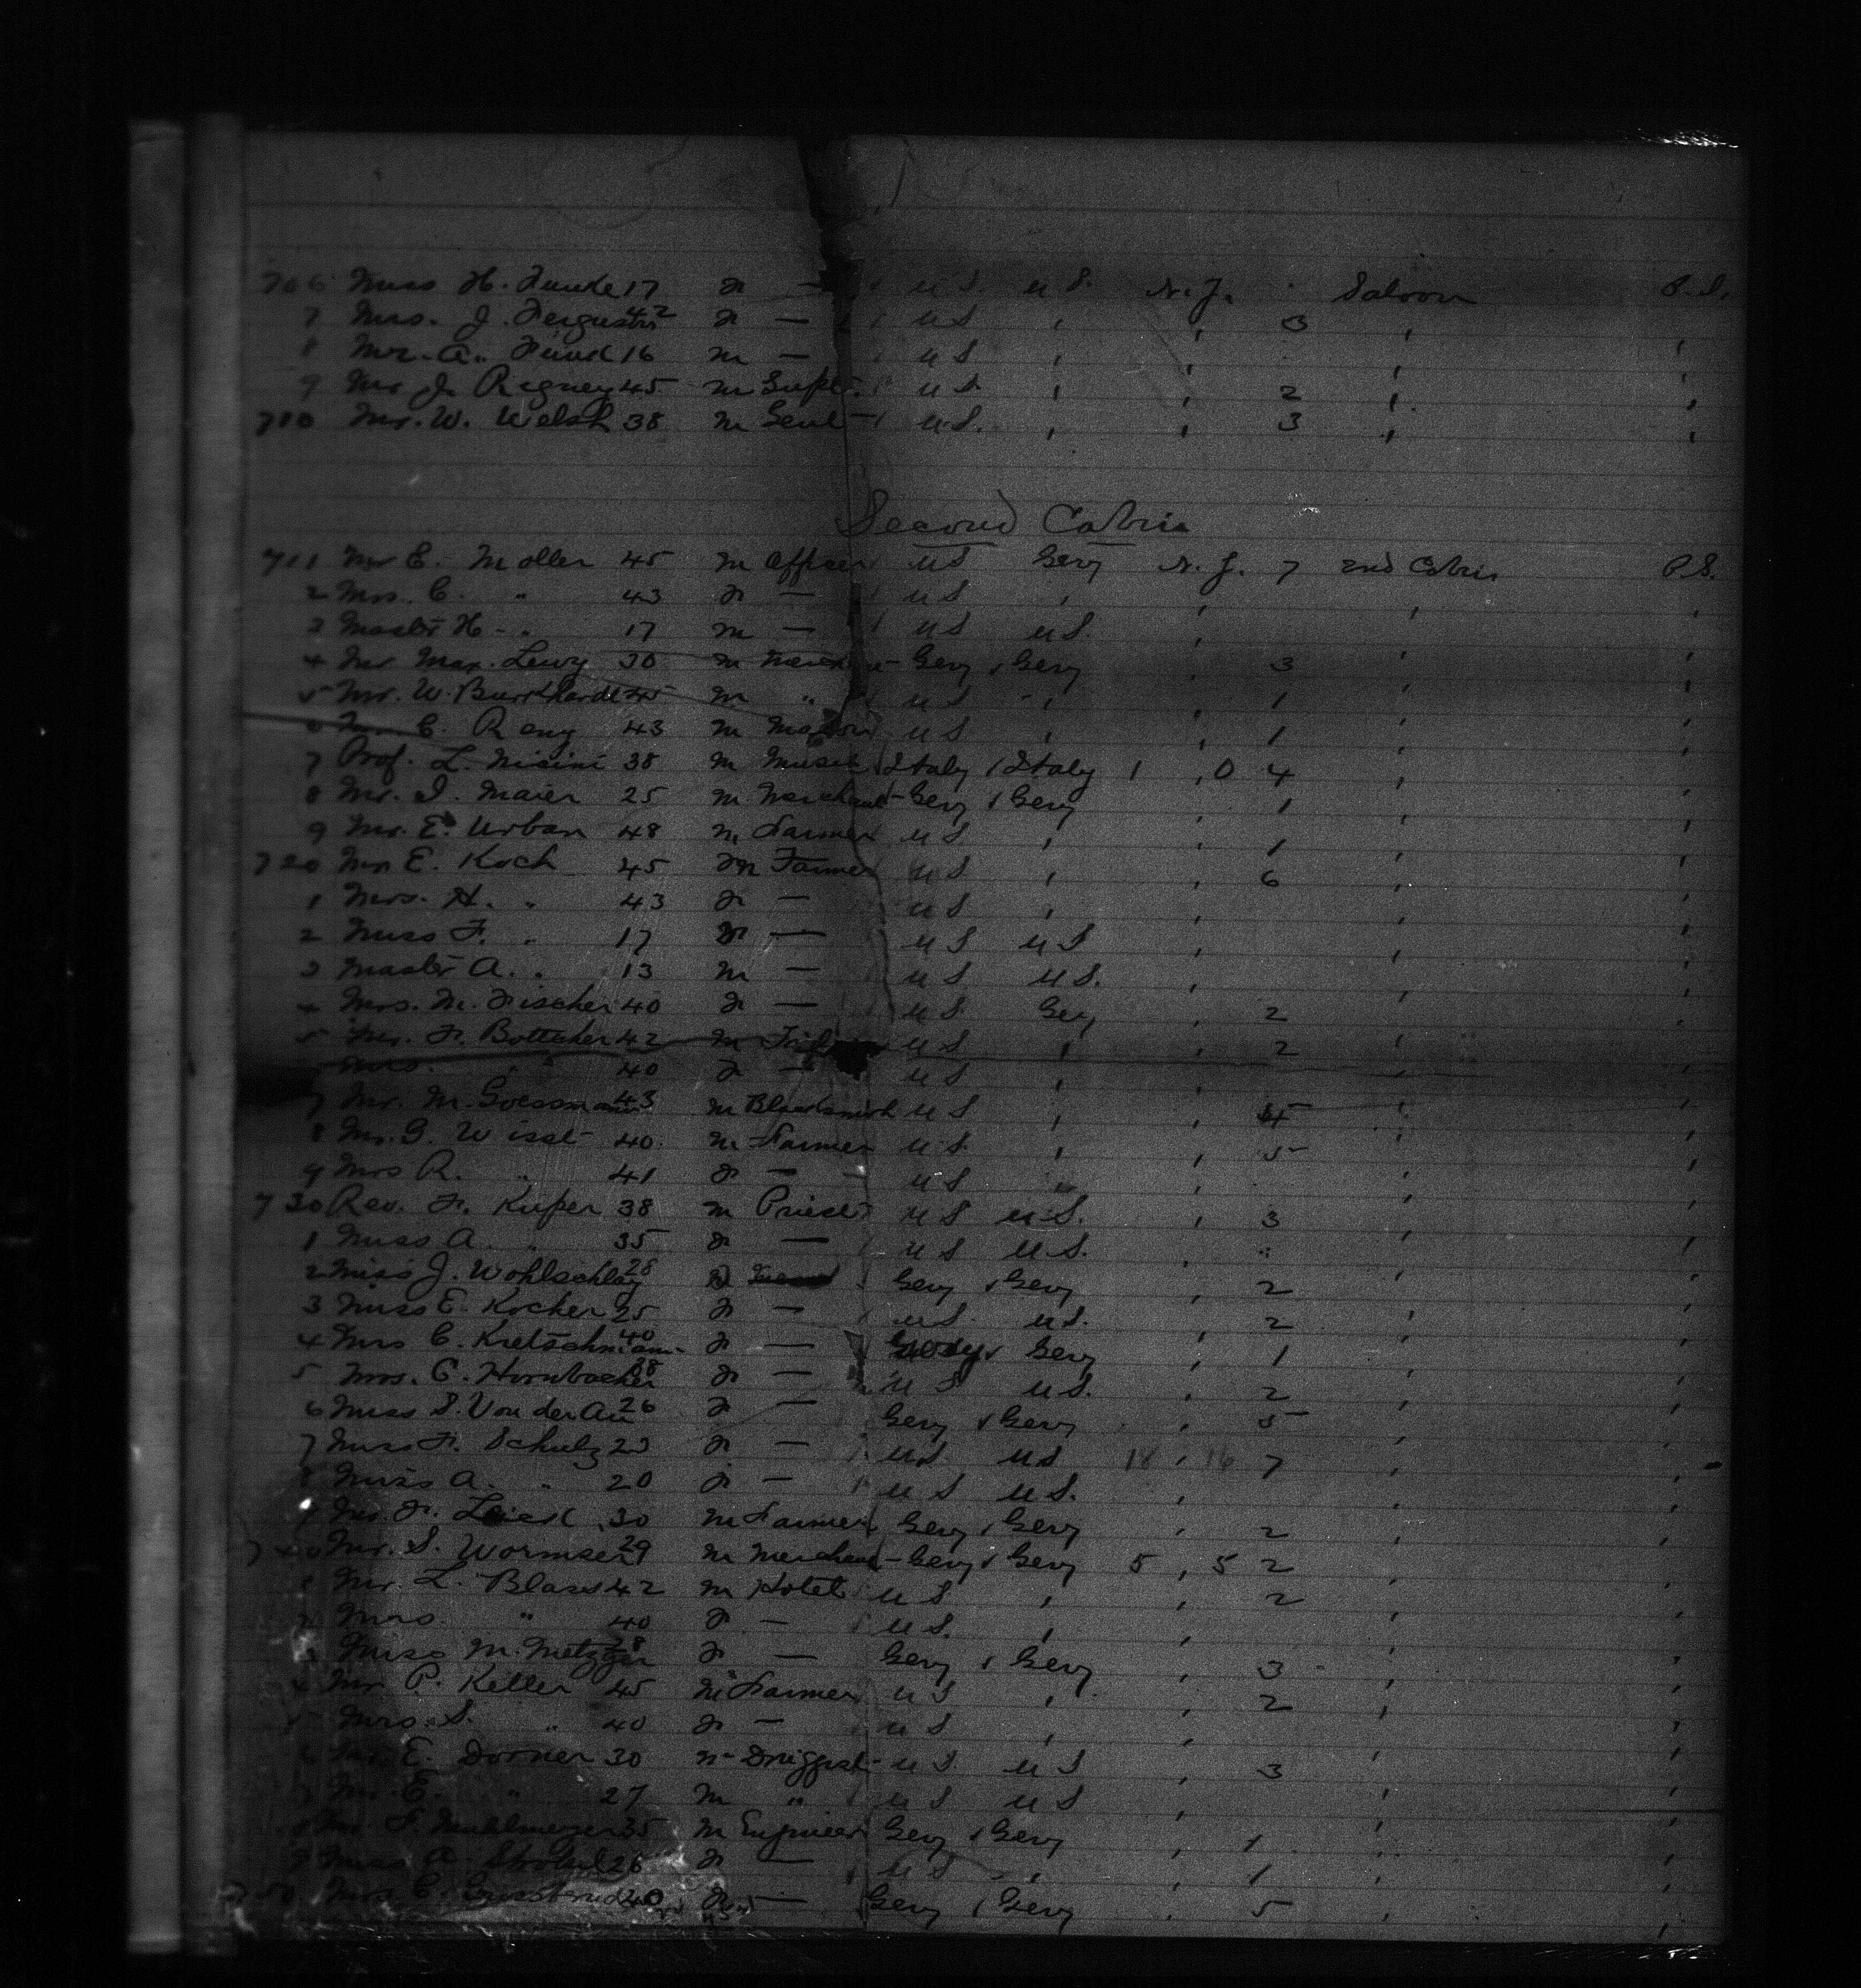 706 Miss H. Funke 17 F — U S. U S. N. J. . Saloon P. S.
7 Mrs. J. Ferguson 42 F — U S , , 3 , ,
8 Mr. A. 16 m — U S , , . , ,
9 Mr J. Rigney 45 m Supt. U S. , , 2 , ,
710 Mr. W. Welsh 38 m Gent U. S. , , 3 , ,
Second Cabin
711 Mr E. Moller 45 m Officer U S Gery N. J. 7 2nd Cabin P. S.
2 Mrs. C. " 43 F — U S , , , ,
3 Master H. " 17 m — U S U S. , , ,
4 Mr Max. Levy 30 m Gery Gery , 3 , ,
5 Mr. W. Burkhardt 45 m " U S " , 1 , ,
6 C. Reny 43 m Mason U S , , 1 , ,
7 Prof. L. Nicini 38 m Music Italy Italy 1 , 0 4 , ,
8 Mr. I. Maier 25 m Merchant Gery Gery , 1 , ,
9 Mr. E. Urban 48 m Farmer U S , , 1 , ,
720 Mr E. Koch 45 m Farmer U S , , 6 , ,
1 Mrs. H. " 43 F — U S , , , ,
2 Miss F. " 17 F — U S U S , , ,
3 Master A. " 13 m — U S U S. , , ,
4 Mrs. M. Fischer 40 F — U S. Gery , 2 , ,
5 Mr. F. Bottcher 42 m U S , , 2 , ,
Mrs. " " 40 F — U S , , , ,
7 Mr. M. Goessmann 43 m Blacksmith U S , , 4 , ,
8 Mr. G. Wisst 40 m Farmer U S. , , 5 , ,
9 Mrs R. " 41 F — U S , , , ,
730 Rev. F. Kuper 38 m Priest U S U S. , 3 , ,
1 Miss A. " 35 F — U S U S. " , ,
2 Miss J. Wohlschlag 28 F Gery Gery , 2 , ,
3 Miss E. Kocher 25 F — U S. U S. , 2 , ,
4 Mrs C. Kretschmann 40 F — Gery , 1 , ,
5 Mrs. C. Hornbacher 38 F — U S U S. , 2 , ,
6 Miss S. Von der Au 26 F — Gery Gery , 5 , ,
7 Miss F. Schulz 23 F — U S. U S 18 , 16 7 , ,
8 Miss A. " 20 F — U S U S. , , ,
9 Mr. F. 30 m Farmer Gery Gery , 2 , ,
740 Mr. S. Wormser 29 m Merchant Gery Gery 5 , 5 2 , ,
1 Mr. L. Blass 42 m Hotel U S , , 2 , ,
2 Mrs. " 40 F — U S. , , , ,
3 Miss M. Metzger 28 F — Gery Gery , 3 , ,
4 Mr P. Keller 45 m Farmer U S , , 2 , ,
5 Mrs. S. " 40 F — U S , , , ,
6 Mr. E. Dorner 30 m Druggist U S. U S , 3 , ,
7 Mr. E. " 27 m " U S U S , , ,
8 Mr F. Muhlmeyer 35 m Engineer Gery Gery , 1 , ,
9 Miss A. Strobel 26 F — U S , , 1 , ,
750 Mrs C. 40 F — Gery Gery , 5 , ,